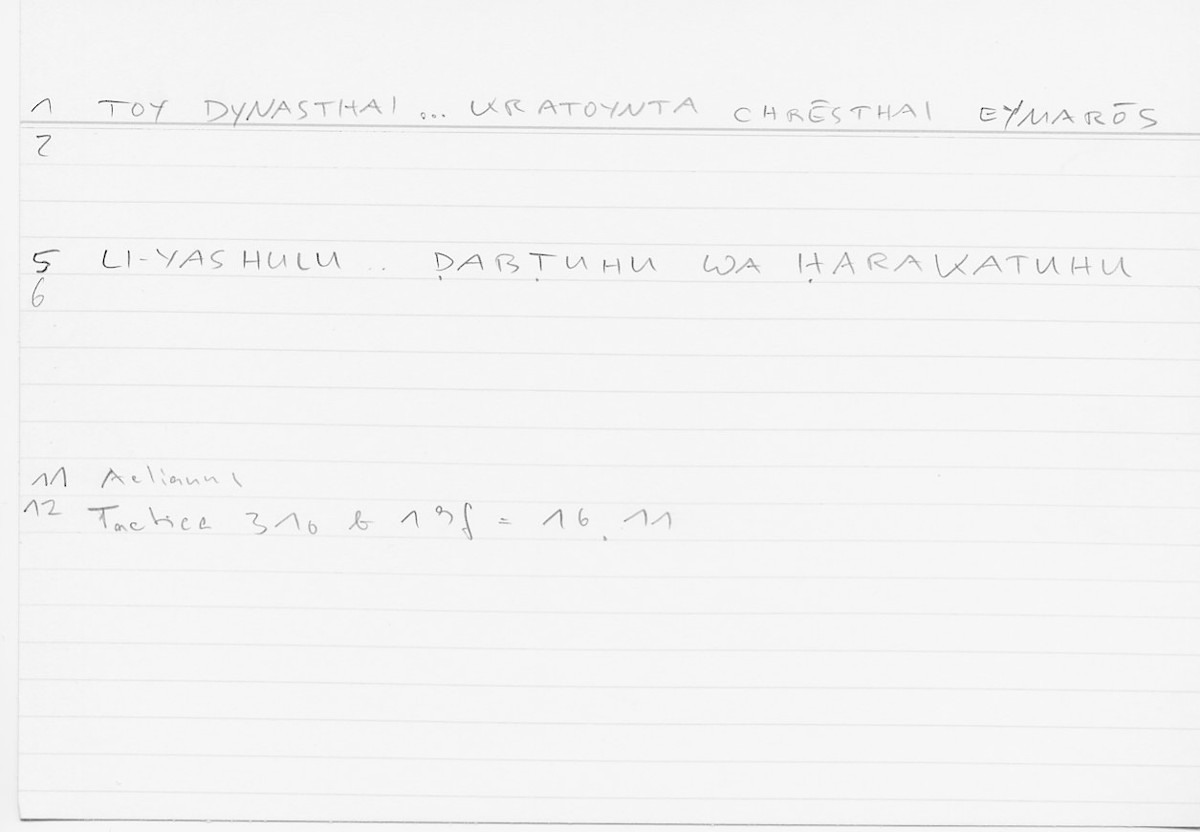 1 TOY DYNASTHAI ... KRATOYNTA CHRĒSTHAI EYMARŌS
2
5 LI-YASHULU .. ḌABṬUHU WA ḤARAKATUHU
6
11 Aelianus
12 Tactica 310 b 19f = 16.11